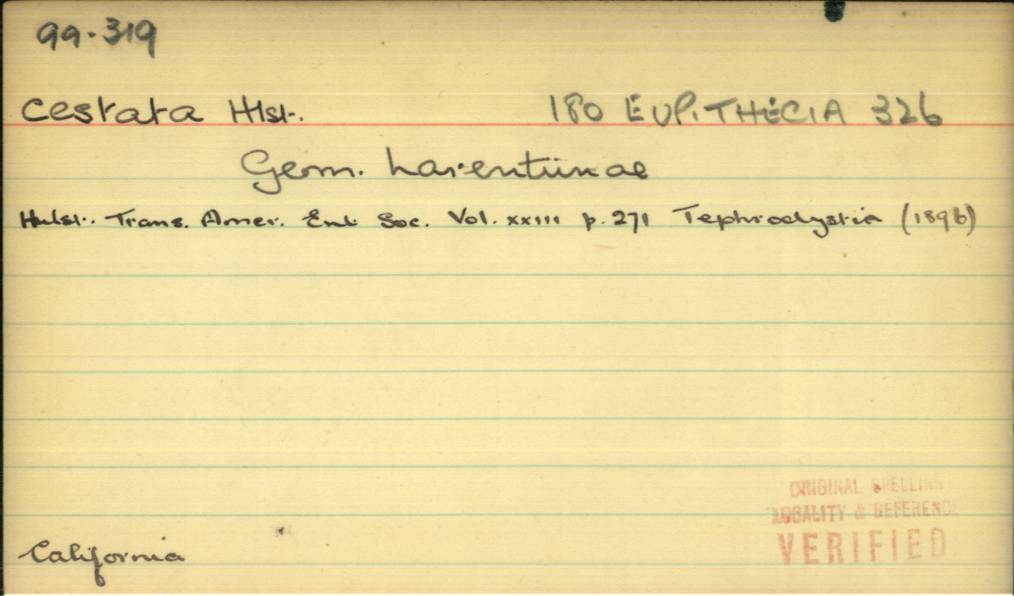 99.319
cestata Hlst. 180 EUPITHECIA 326
Geom. Larentiinae
Hulst. Trans. Amer. Ent Soc. Vol. xxiii p. 271 Tephroclystia (1896)
ORIGINAL SPELLING
LOCALITY & REFERENCE
VERIFIED
California